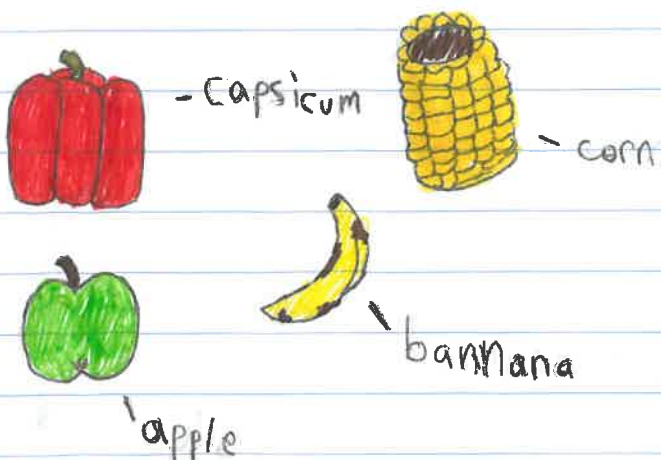 - Capsicum
- corn
bannana
apple